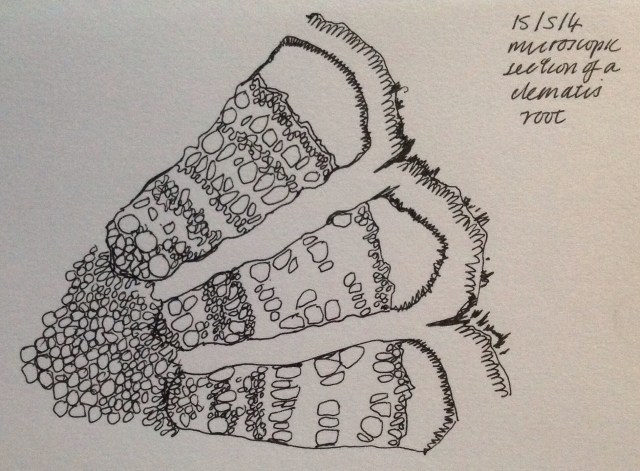 15/5/14
microscopic
section of a
clematis
root